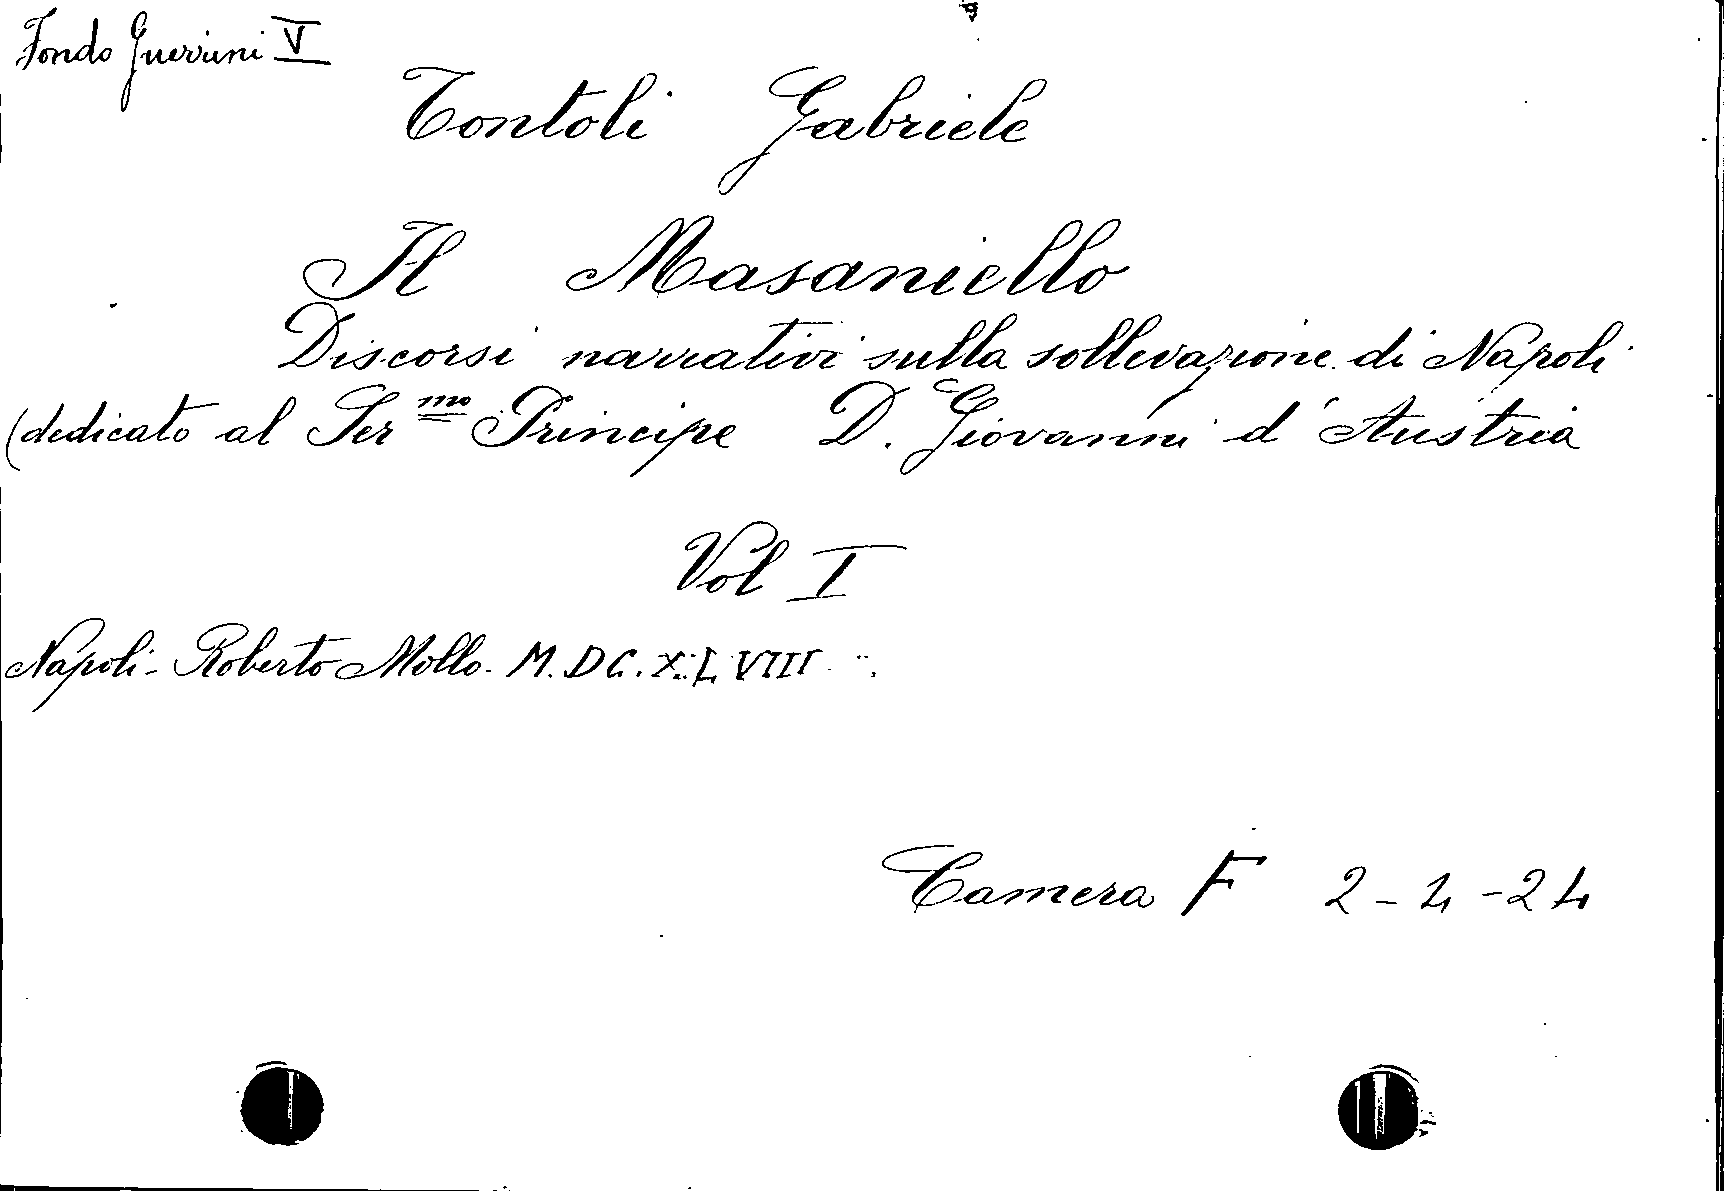 Fondo Guerrini V
Tontoli Gabriele
Il Masaniello
Discorsi narrativi sulla sollevazione di Napoli
(dedicato al Ser mo Principe D. Giovanni d'Austria
Vol I
Napoli - Roberto Mollo - M.DC.XLVIII
Camera F 2-4-24